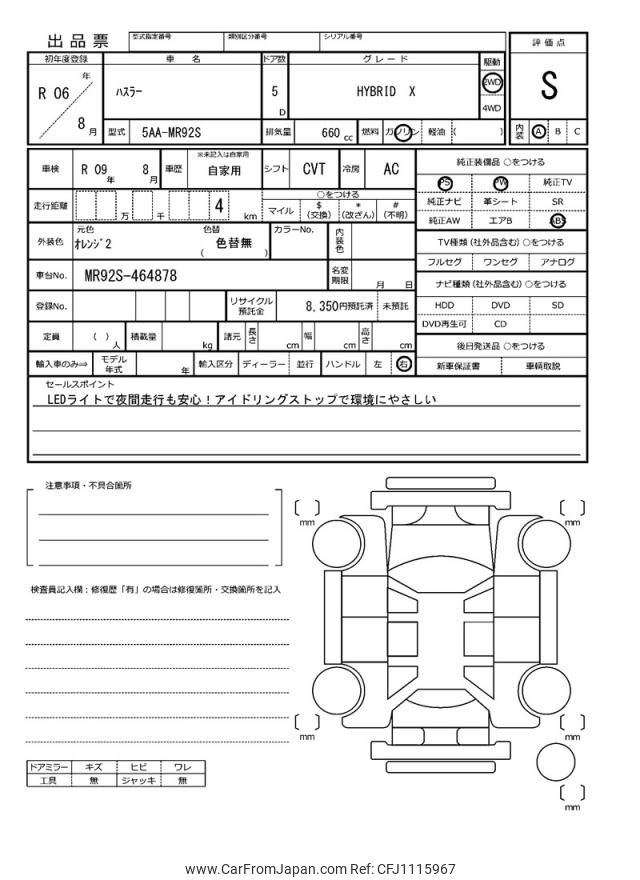 出品票
型式指定番号 類別区分番号 シリアル番号
評価点
S
内装 A B C
初年度登録 車名 ドア数 グレード 駆動
R 06 年 8 月
ハスラー 5 D HYBRID X 2WD 4WD
型式 5AA-MR92S 排気量 660 cc 燃料 ガソリン 軽油 ( )
車検 R 09 年 8 月 車歴 ※未記入は自家用 自家用 シフト CVT 冷房 AC
走行距離 万 千 4 km
○をつける
マイル $ (交換) * (改ざん) # (不明)
外装色 元色 オレンジ2 色替 色替無 ( ) カラーNo. 内装色
車台No. MR92S-464878 名変期限 月 日
登録No. リサイクル預託金 8,350円預託済 未預託
定員 ( ) 人 積載量 kg 諸元 長さ cm 幅 cm 高さ cm
輸入車のみ⇒ モデル年式 年 輸入区分 ディーラー 並行 ハンドル 左 右
純正装備品 ○をつける
PS PW 純正TV
純正ナビ 革シート SR
純正AW エアB ABS
TV種類 (社外品含む) ○をつける
フルセグ ワンセグ アナログ
ナビ種類 (社外品含む) ○をつける
HDD DVD SD
DVD再生可 CD
後日発送品 ○をつける
新車保証書 車輌取説
セールスポイント
LEDライトで夜間走行も安心！アイドリングストップで環境にやさしい
注意事項・不具合箇所
検査員記入欄：修復歴「有」の場合は修復箇所・交換箇所を記入
ドアミラー キズ ヒビ ワレ
工具 無 ジャッキ 無
[ ] mm
[ ] mm
[ ] mm
[ ] mm
[ ] mm
www.CarFromJapan.com Ref: CFJ1115967